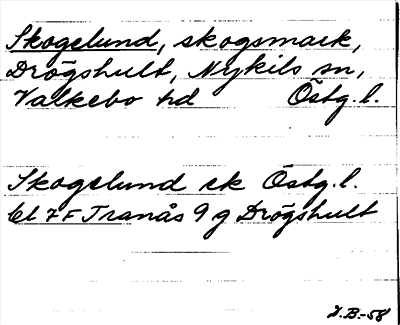 Skogelund, skogsmark,
Drögshult, Nykils sn,
Valkebo hd Östg.l.
Skogelund ek Östg.l.
bl 7F Tranås 9 g Drögshult
J.B.-58